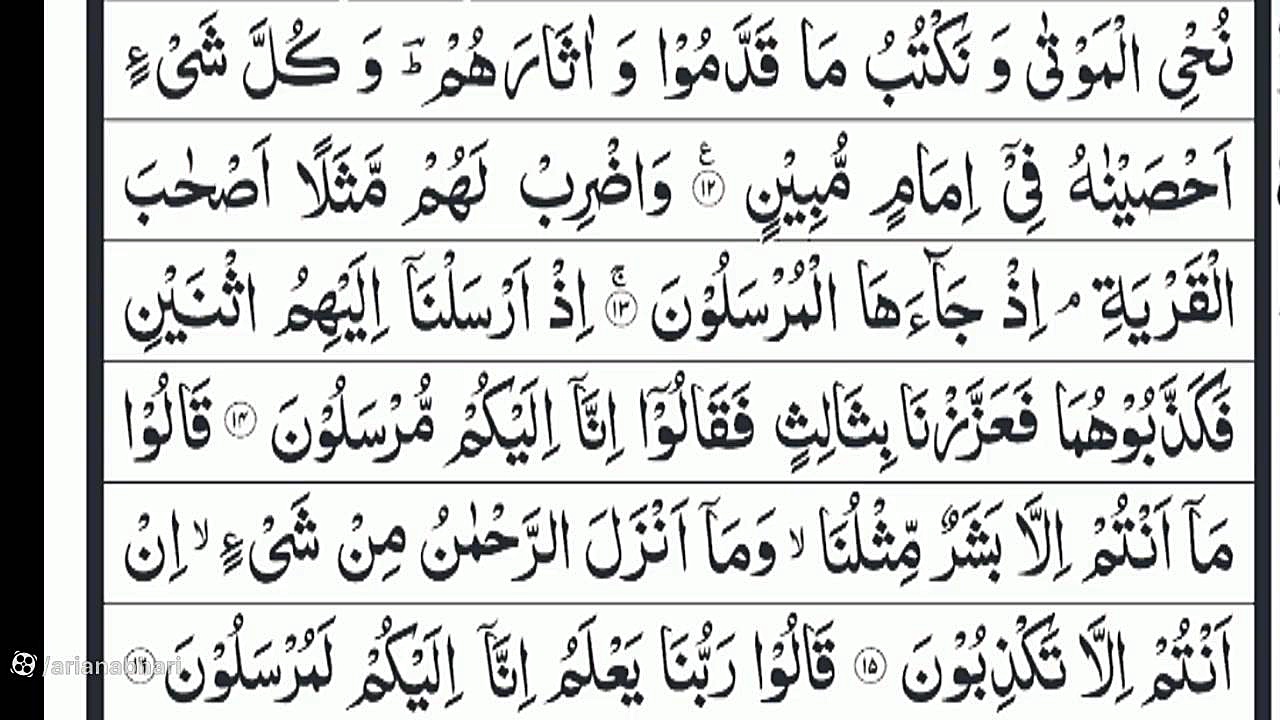 نُحْیِ الْمَوْتٰی وَ نَكْتُبُ مَا قَدَّمُوْا وَ اٰثَارَهُمْ ؕ وَ كُلَّ شَیْءٍ
اَحْصَیْنٰهُ فِیْۤ اِمَامٍ مُّبِیْنٍ ۧ ⑫ وَاضْرِبْ لَهُمْ مَّثَلًا اَصْحٰبَ
الْقَرْیَةِ ۘ اِذْ جَآءَهَا الْمُرْسَلُوْنَ ۚ ⑬ اِذْ اَرْسَلْنَاۤ اِلَیْهِمُ اثْنَیْنِ
فَكَذَّبُوْهُمَا فَعَزَّزْنَا بِثَالِثٍ فَقَالُوْۤا اِنَّاۤ اِلَیْكُمْ مُّرْسَلُوْنَ ۱۴ قَالُوْا
مَاۤ اَنْتُمْ اِلَّا بَشَرٌ مِّثْلُنَا ۙ وَمَاۤ اَنْزَلَ الرَّحْمٰنُ مِنْ شَیْءٍ ۙ اِنْ
اَنْتُمْ اِلَّا تَكْذِبُوْنَ ۱۵ قَالُوْا رَبُّنَا یَعْلَمُ اِنَّاۤ اِلَیْكُمْ لَمُرْسَلُوْنَ
/arianabhari